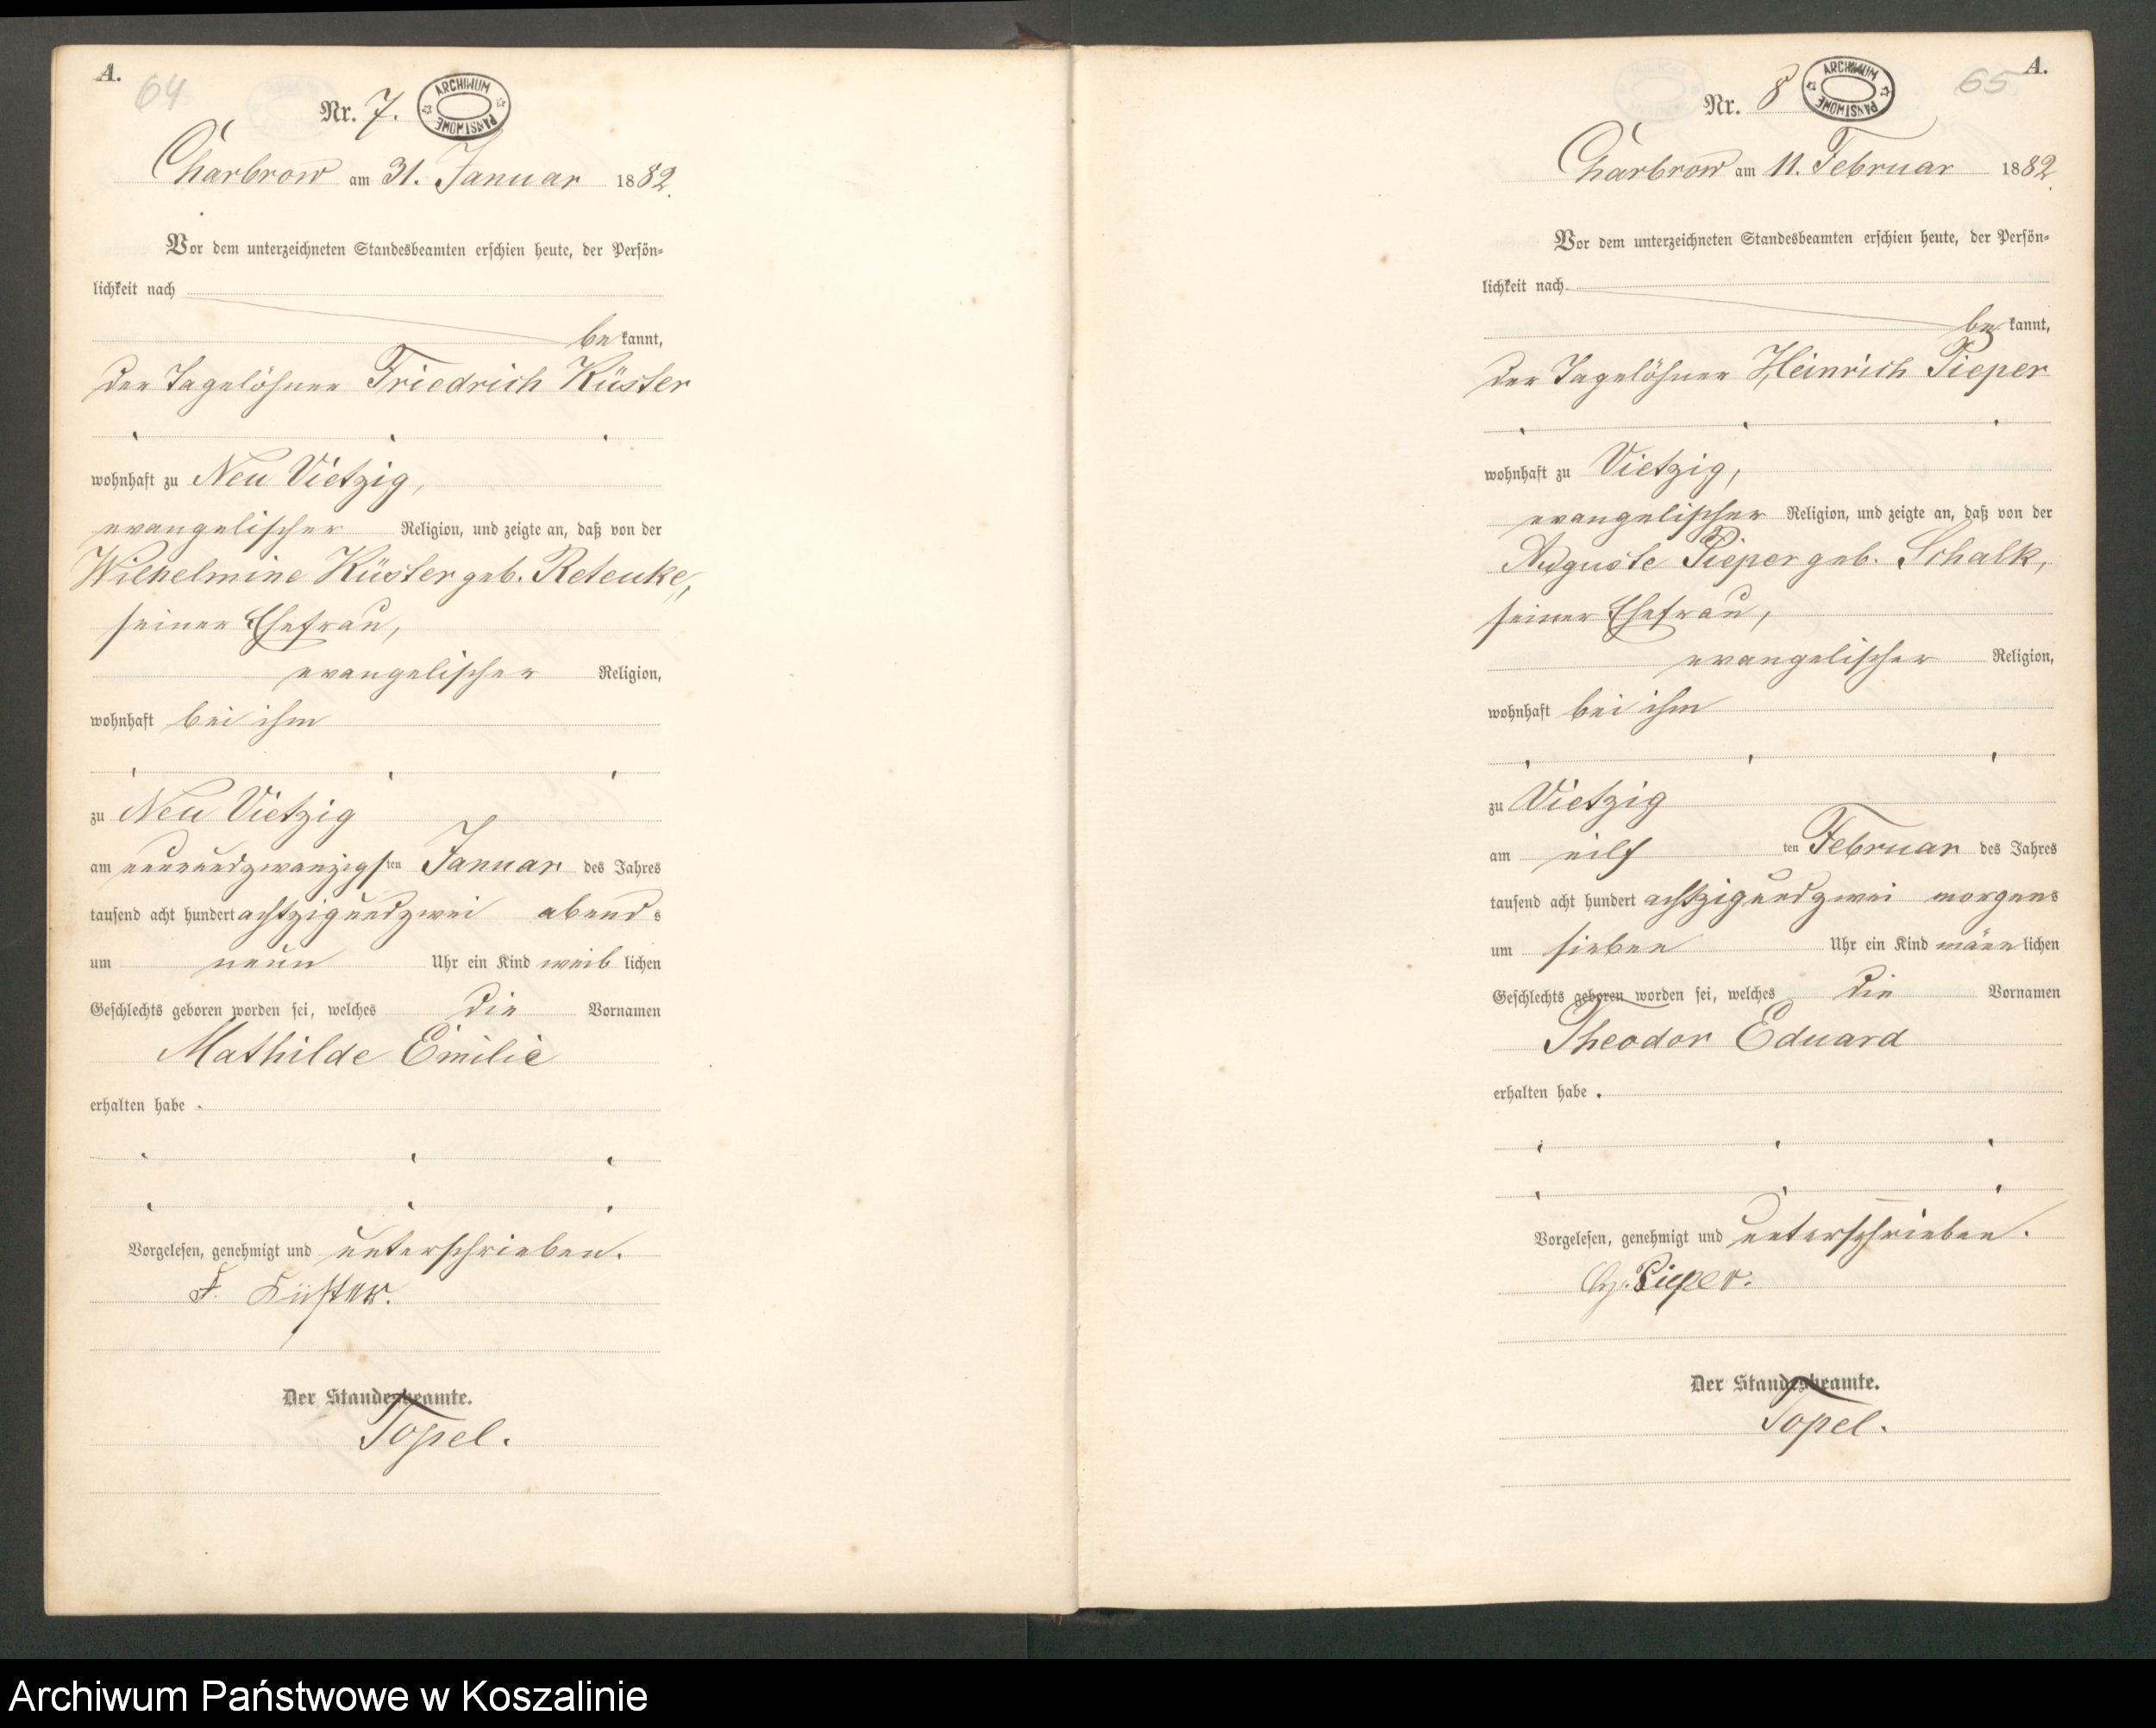 A.
64
Nr. 7.
ARCHIWUM PAŃSTWOWE
Charbrow am 31. Januar 1882.
Vor dem unterzeichneten Standesbeamten erschien heute, der Persön-
lichkeit nach
be kannt,
der Tagelöhner Friedrich Küster
wohnhaft zu Neu Vietzig,
evangelischer Religion, und zeigte an, daß von der
Wilhelmine Küster geb. Reteuke,
seiner Ehefrau,
evangelischer Religion,
wohnhaft bei ihm
zu Neu Vietzig
am neunundzwanzigsten Januar des Jahres
tausend acht hundert achtzigundzwei abends
um neun Uhr ein Kind weiblichen
Geschlechts geboren worden sei, welches die Vornamen
Mathilde Emilie
erhalten habe.
Vorgelesen, genehmigt und unterschrieben.
F. Küster.
Der Standesbeamte.
Topel.
65
A.
Nr. 8
ARCHIWUM PAŃSTWOWE
Charbrow am 11. Februar 1882.
Vor dem unterzeichneten Standesbeamten erschien heute, der Persön-
lichkeit nach
be kannt,
der Tagelöhner Heinrich Pieper
wohnhaft zu Vietzig,
evangelischer Religion, und zeigte an, daß von der
Auguste Pieper geb. Schalk,
seiner Ehefrau,
evangelischer Religion,
wohnhaft bei ihm
zu Vietzig
am eilf ten Februar des Jahres
tausend acht hundert achtzigundzwei morgens
um sieben Uhr ein Kind männlichen
Geschlechts geboren worden sei, welches die Vornamen
Theodor Eduard
erhalten habe.
Vorgelesen, genehmigt und unterschrieben.
Pieper.
Der Standesbeamte.
Topel.
Archiwum Państwowe w Koszalinie